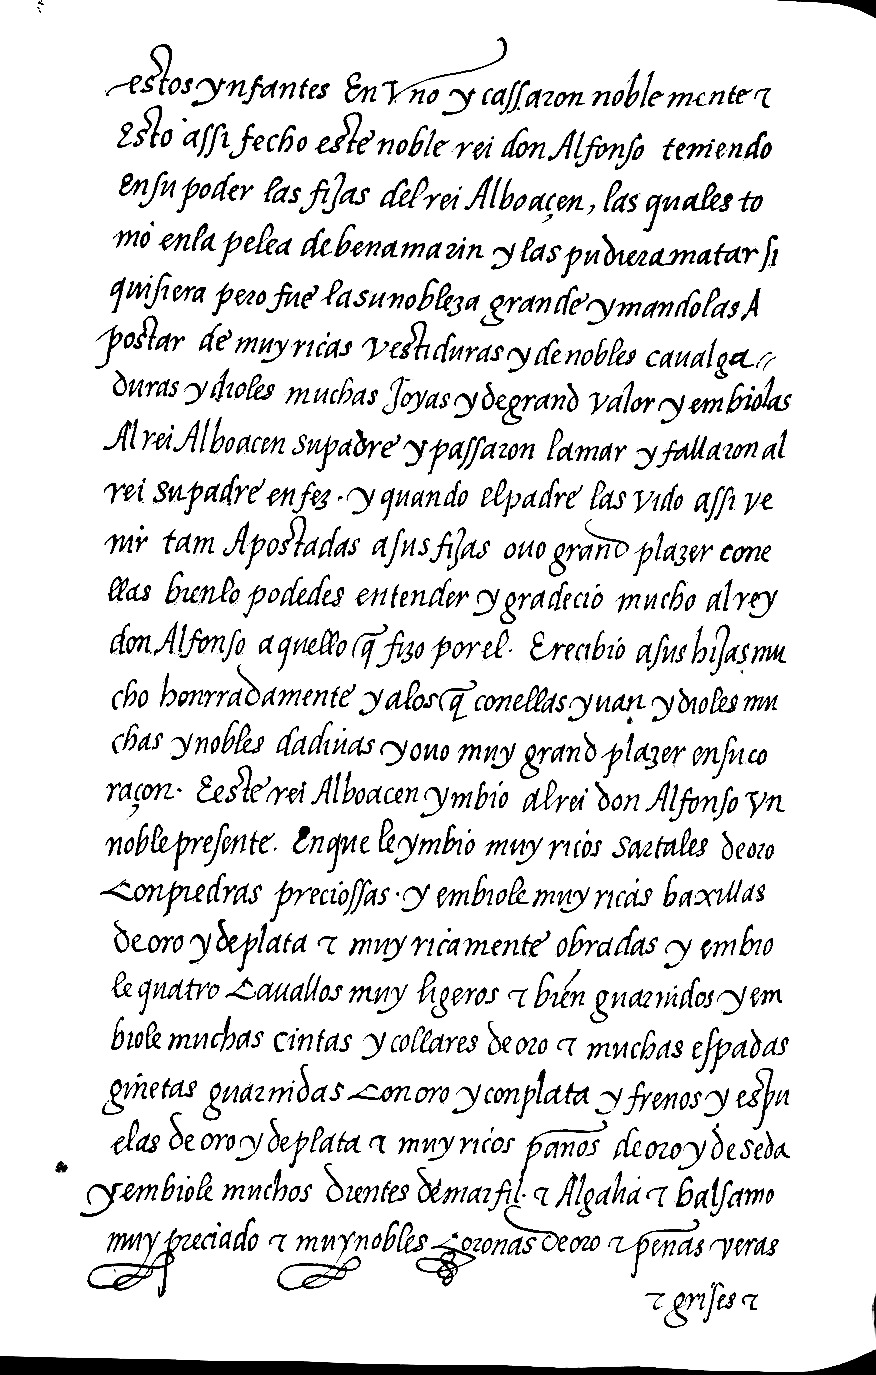 estos ynfantes En Vno y cassaron noble mente τ
Esto assi fecho este noble rei don Alfonso teniendo
en su poder las fijas del rei Alboaçen, las quales to
mo en la pelea de benamarin y las pudiera matar si
quisiera pero fue la su nobleza grande y mandolas A
postar de muy ricas vestiduras y de nobles caualga〃
duras y dioles muchas Joyas y de grand valor y embiolas
Al rei Alboacen su padre y passaron la mar y fallaron al
rei su padre en fez . y quando el padre las vido assi ve
nir tam Apostadas a sus fijas ouo grand plazer cone
llas bien lo podedes entender y gradecio mucho al rey
don Alfonso aquello q̃ fizo por el . E recibio a sus hijas mu
cho honrradamente y a los q̃ con ellas yuan y dioles mu
chas y nobles dadiuas y ouo muy grand plazer en su co
raçon . E este rei Alboacen ymbio al rei don Alfonso vn
noble presente . En que le ymbio muy ricos sartales de oro
Con piedras preciossas . y embiole muy ricas baxillas
de oro y de plata τ muy ricamente obradas y embio
le quatro Cauallos muy ligeros τ bien guarnidos y em
biole muchas cintas y collares de oro τ muchas espadas
ginetas guarnidas Con oro y con plata y frenos y espu
elas de oro y de plata τ muy ricos panos de oro y de seda
y embiole muchos dientes de marfil . τ Algalia τ balsamo
muy preciado τ muy nobles Coronas de oro τ penas veras
τ grises τ